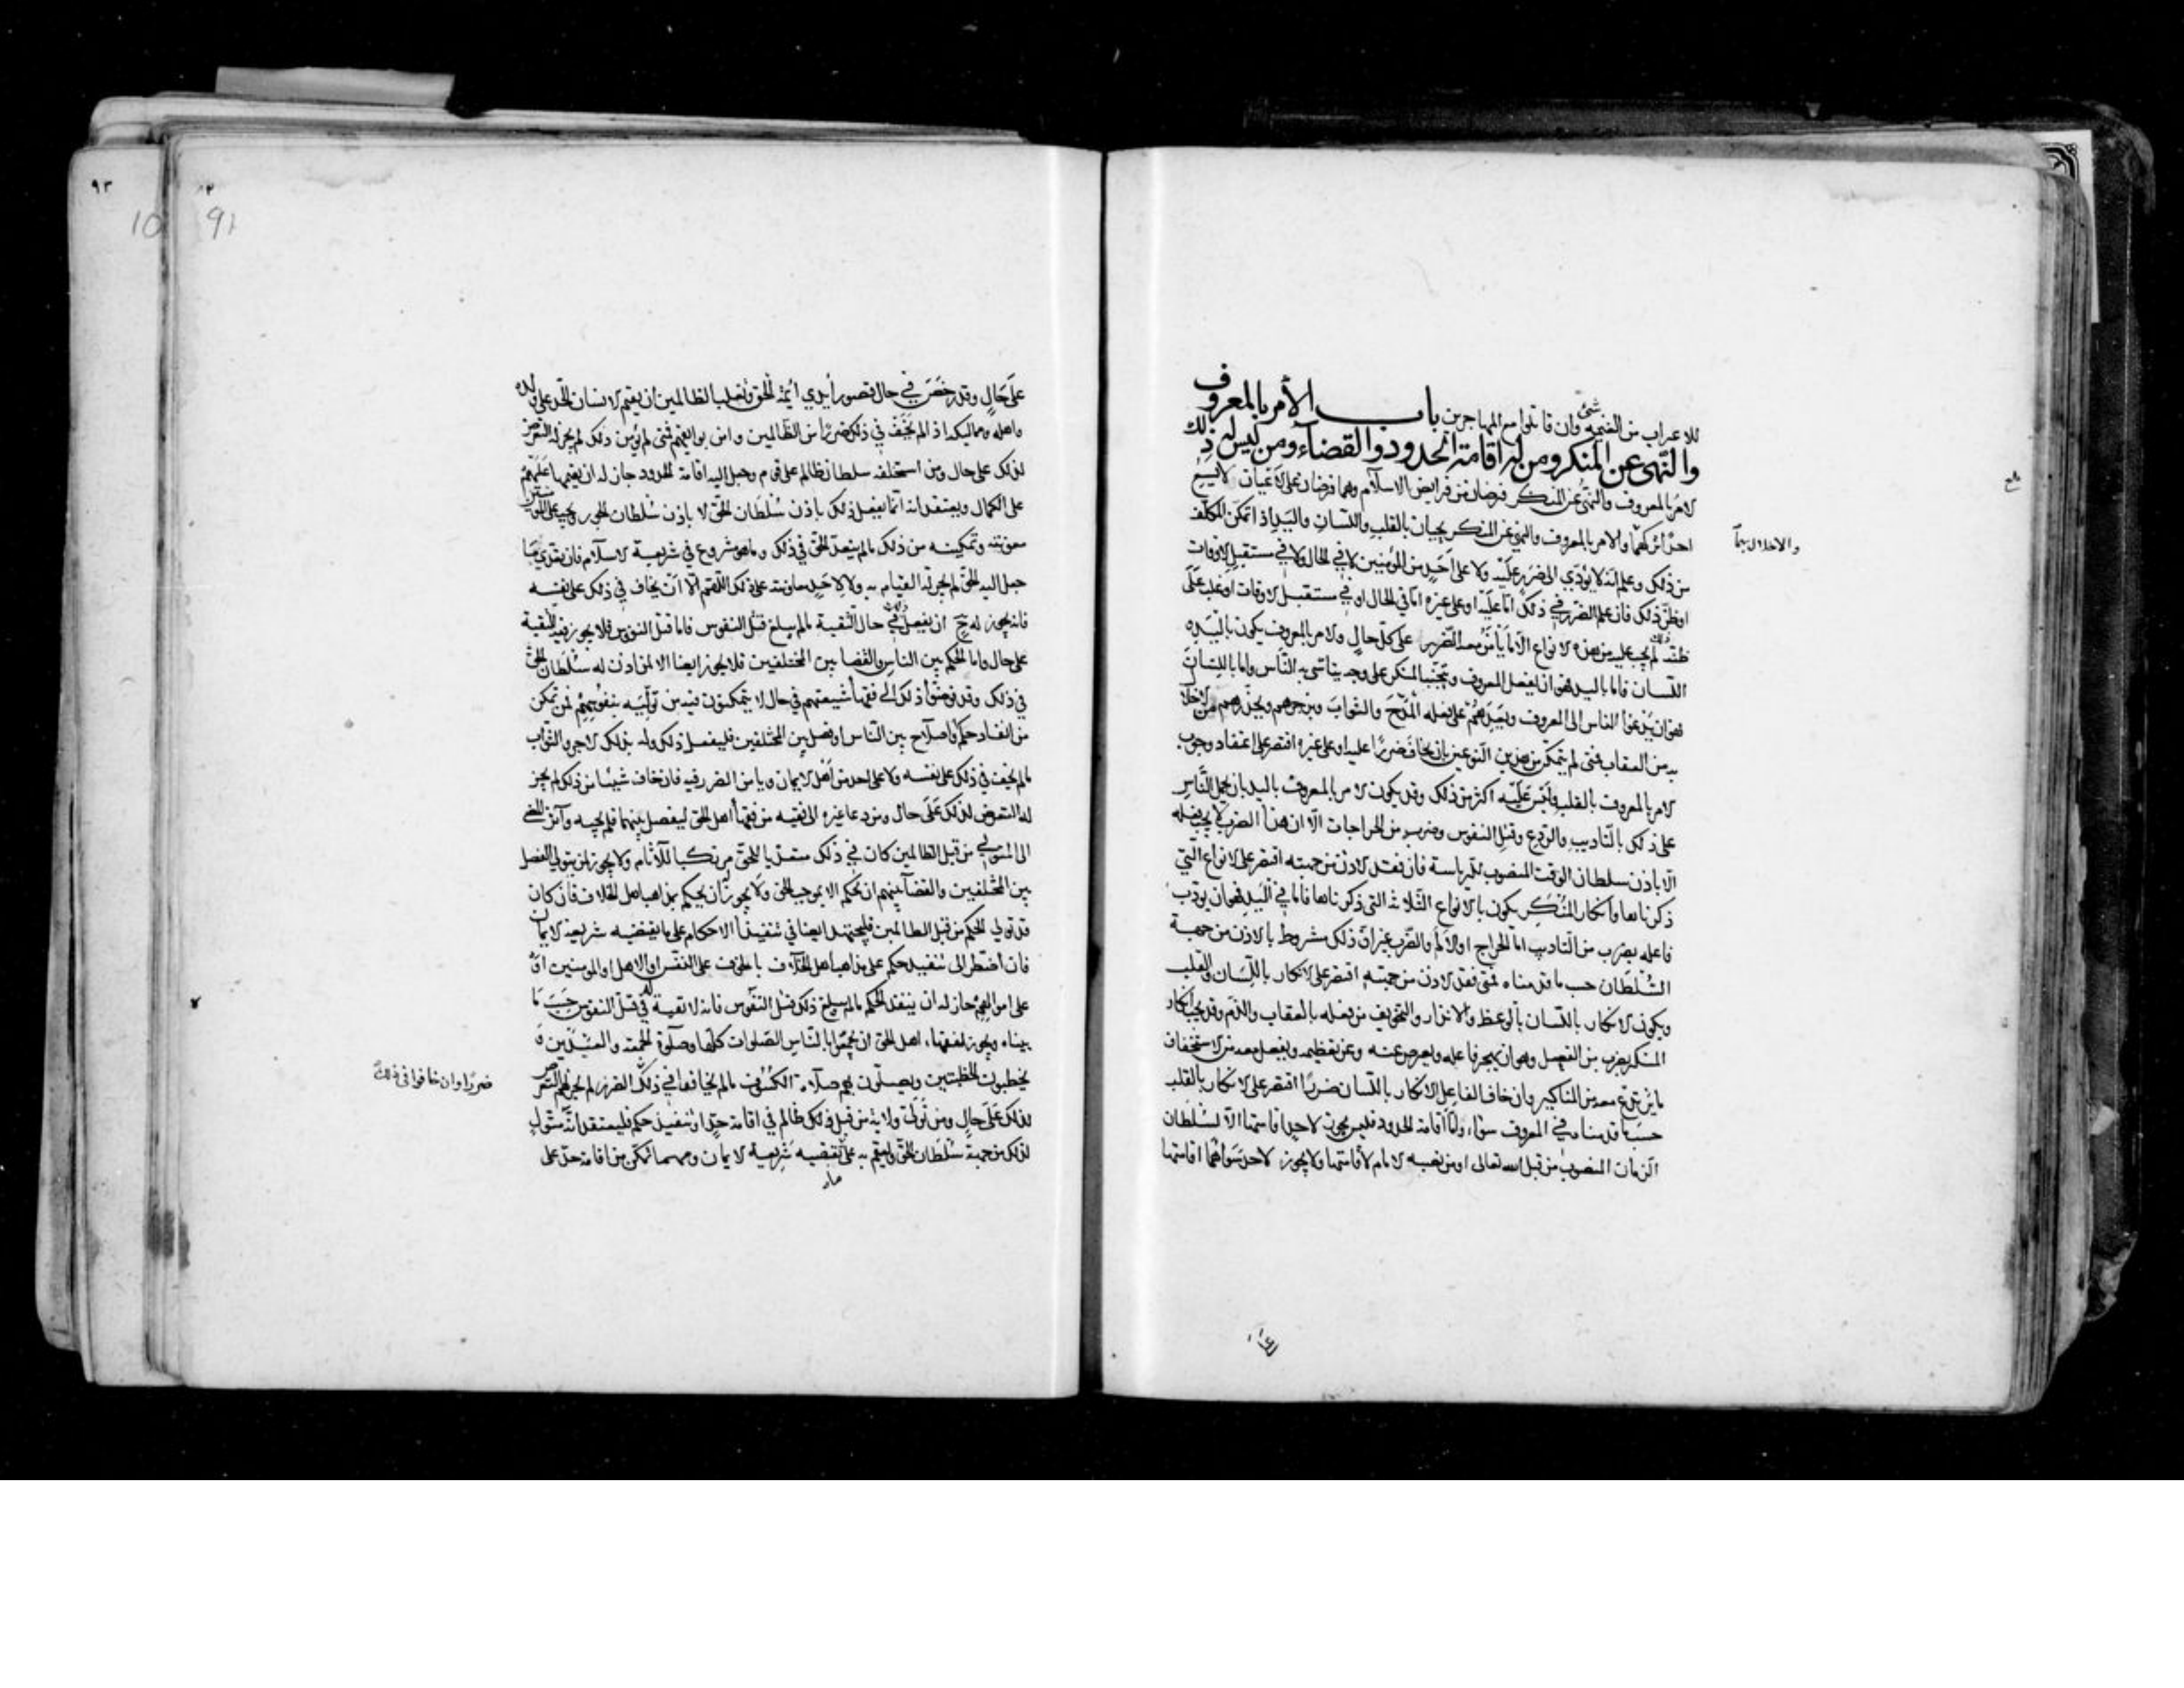 للاعراب من الغنيمة شئ وان قاتلوا مع المهاجرين باب الأمر بالمعروف
والنهى عن المنكر ومن له اقامة الحدود والقضاء ومن ليس له ذلك
الامر بالمعروف والنهى عن المنكر فرضان من فرايض الاسلام وهما فرضان على الاعيان لا يسع
احدا تركهما والامر بالمعروف والنهى عن المنكر يجبان بالقلب واللسان واليد اذا تمكن المكلف
والاخلال بهما
من ذلك وعلم انه لا يؤدي الى ضرر عليه ولا على احد من المؤمنين لا في الحال ولا في مستقبل الاوقات
او ظن ذلك فان علم الضرر في ذلك اما عليه او على غيره اما في الحال او في مستقبل الاوقات او غلب على
ظنه ذلك لم يجب عليه من هذه الانواع الا ما يأمن معه الضرر على كل حال والامر بالمعروف يكون باليد و
اللسان فاما باليد فهو ان يفعل المعروف ويجتنب المنكر على وجه يتأسى به الناس واما باللسان
فهو ان يدعوا الناس الى المعروف ويعدهم على فعله المدح والثواب ويزجرهم ويحذرهم من الاخلال
به من العقاب فمتى لم يتمكن من هذين النوعين بان يخاف ضررا عليه او على غيره اقتصر على اعتقاد وجوب
الامر بالمعروف بالقلب وليس عليه اكثر من ذلك وقد يكون الامر بالمعروف باليد بان يحمل الناس
على ذلك بالتاديب والردع وقتل النفوس وضرب من الجراحات الا ان هذا الضرب لا يجب فعله
الا باذن سلطان الوقت المنصوب للرياسة فان فقد الاذن من جهته اقتصر على الانواع التي
ذكرناها وانكار المنكر يكون بالانواع الثلاثة التي ذكرناها فاما في اليد فهو ان يؤدب
فاعله بضرب من التاديب اما الجراح او الالم والضرب غير ان ذلك مشروط بالاذن من جهة
السلطان حسب ما قدمناه فمتى فقد الاذن من جهته اقتصر على الانكار باللسان والقلب
ويكون الانكار باللسان بالوعظ والانذار والتخويف من فعله بالعقاب والذم وقد يجب انكار
المنكر بضرب من الفعل وهو ان يهجر فاعله ويعرض عنه وعن تعظيمه ويفعل معه من الاستخفاف
ما يرتدع معه من المناكير وان خاف الفاعل للانكار باللسان ضررا اقتصر على الانكار بالقلب
حسب ما قدمناه في المعروف سواء واما اقامة الحدود فليس يجوز لاحد اقامتها الا لسلطان
الزمان المنصوب من قبل الله تعالى او من نصبه الامام لاقامتها ولا يجوز لاحد سواهما اقامتها
على حال وقد رخص في حال قصور ايدي ائمة الحق وتغلب الظالمين ان يقيم الانسان الحد على ولده
واهله ومماليكه اذا لم يخف في ذلك ضررا من الظالمين وامن بوايقهم فمتى لم يؤمن ذلك لم يجز له التعرض
لذلك على حال ومن استخلفه سلطان ظالم على قوم وجعل اليه اقامة الحدود جاز له ان يقيمها عليهم
على الكمال ويعتقد انه انما يفعل ذلك باذن سلطان الحق لا باذن سلطان الجور ويجب على المؤمنين
معونته وتمكينه من ذلك ما لم يتعد الحق في ذلك وما هو مشروع في شريعة الاسلام فان تعدى فيما
جعل اليه الحق لم يجز له القيام به ولا لاحد معاونته على ذلك اللهم الا ان يخاف في ذلك على نفسه
فانه يجوز له ح ان يفعل ذلك في حال التقية ما لم يبلغ قتل النفوس فاما قتل النفوس فلا يجوز فيه التقية
على حال واما الحكم بين الناس والقضا بين المختلفين فلا يجوز ايضا الا لمن اذن له سلطان الحق
في ذلك وقد فوضوا ذلك الى فقهاء شيعتهم في حال لا يتمكنون فيه من توليه بنفوسهم فمن تمكن
من انفاذ حكم او اصلاح بين الناس او فصل بين المختلفين فليفعل ذلك وله بذلك الاجر والثواب
ما لم يخف في ذلك على نفسه ولا على احد من اهل الايمان ويامن الضرر فيه فان خاف شيئا من ذلك لم يجز
له التعرض لذلك على حال ومن دعا غيره الى فقيه من فقهاء اهل الحق ليفصل بينهما فلم يجبه وآثر المضي
الى المتولي من قبل الظالمين كان في ذلك متعديا للحق مرتكبا للآثام ولا يجوز لمن يتولي الفصل
بين المختلفين والقضاء بينهم ان يحكم الا بموجب الحق ولا يجوز له ان يحكم بمذاهب اهل الخلاف فان كان
قد تولي الحكم من قبل الظالمين فليجتهد ايضا في تنفيذ الاحكام على ما يقتضيه شريعة الايمان
فان اضطر الى تنفيذ حكم على مذاهب اهل الخلاف بالخوف على النفس او الاهل او المؤمنين او
على اموالهم جاز له ان ينفذ الحكم ما لم يبلغ ذلك قتل النفوس فانه لا تقية له في قتل النفوس حسب ما
بيناه ويجوز لفقهاء اهل الحق ان يجمعوا بالناس الصلوات كلها وصلوة الجمعة والعيدين و
يخطبون الخطبتين ويصلون بهم صلاة الكسوف ما لم يخافوا في ذلك الضرر لم يجز لهم التعرض
ضررا وان خافوا في ذلك
لذلك على حال ومن تولى ولاية من قبل ظالم في اقامة حد او تنفيذ حكم فليعتقد انه متول
لذلك من جهة سلطان الحق وليقم به على ما تقتضيه شريعة الايمان ومهما تمكن من اقامة حد على
٩٣
91
10